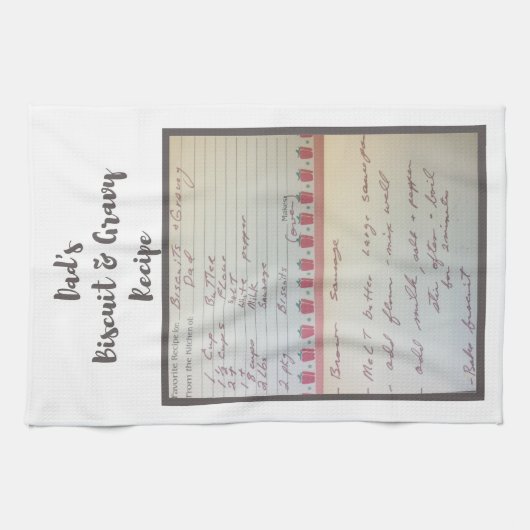 Dad's
Biscuit & Gravy
Recipe
Favorite Recipe for: Biscuits & Gravy
From the Kitchen of: Dad
1 Cup Butter
1 ½ Cups Flour
2 t salt
1 t white pepper
8 cups Milk
2 lbs Sausage
2 pkg Biscuits
Makes:
(over)
- Brown Sausage
- Melt butter large saucepan
- add flour - mix well
- add milk, salt & pepper
stir often & boil
for 2 minutes
- Bake biscuit